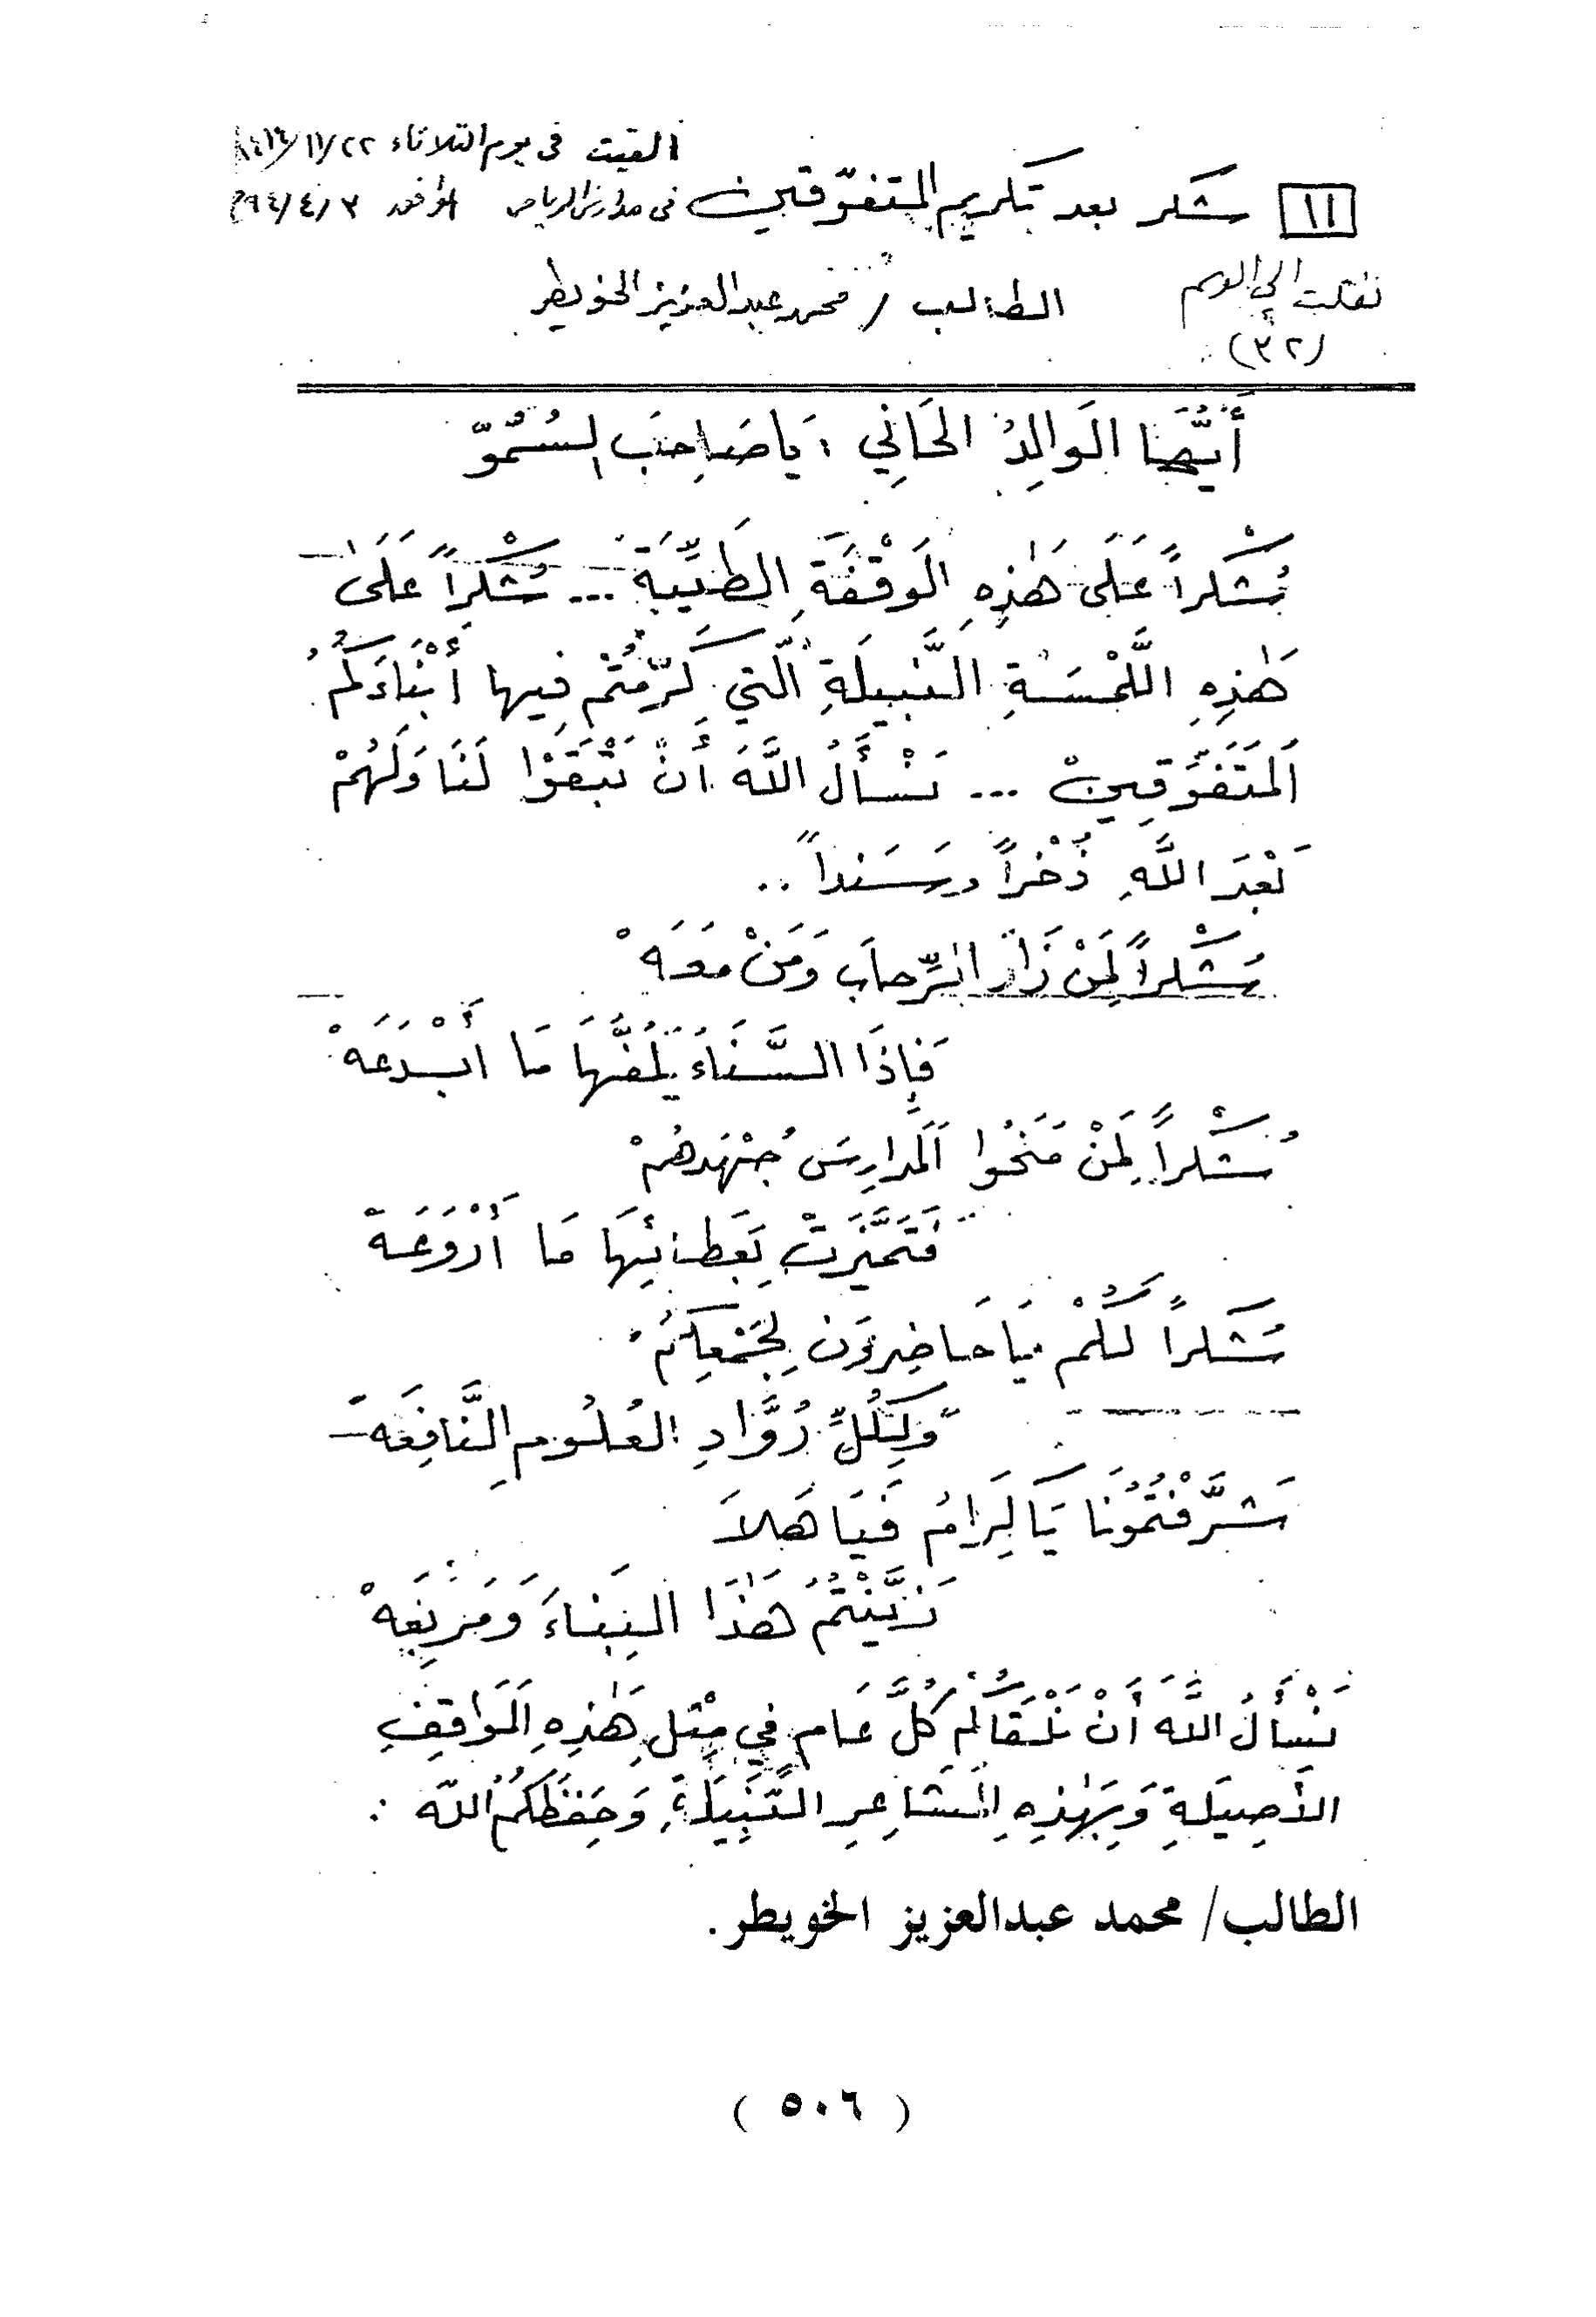 القيت في يوم الثلاثاء ٢٢/١١/
١١ شكر بعد تكريم المتفوّقين في مدارس الرياض الموافق ٣/٤/
الطالب / محمد عبدالعزيز الخويطر
نقلت إلى
(٣٢)
أَيُّهَا الوَالِدُ الحَانِي ، يَا صَاحِبَ السُّمُوّ
شُكْراً عَلَى هَذِهِ الوَقْفَةِ الطَّيِّبَةِ ... شُكْراً عَلَى
هَذِهِ اللَّمْسَةِ النَّبِيلَةِ الَّتِي كَرَّمْتُمْ فِيهَا أَبْنَاءَكُمُ
المُتَفَوِّقِينْ ... نَسْأَلُ اللَّهَ أَنْ تَبْقَوْا لَنَا وَلَهُمْ
بَعْدَ اللَّهِ ذُخْراً وَسَنَداً ..
شُكْراً لِمَنْ زَارَ الرِّحَابَ وَمَنْ مَعَهْ
فَإِذَا السَّنَاءُ يَلُفُّهَا مَا أَبْدَعَهْ
شُكْراً لِمَنْ مَنَحُوا المَدَارِسَ جُهْدَهُمْ
فَتَمَيَّزَتْ بِعَطَائِهَا مَا أَرْوَعَهْ
شُكْراً لَكُمْ يَا حَاضِرُونَ لِجَمْعِكُمْ
وَلِكُلِّ رُوَّادِ العُلُومِ النَّافِعَه
شَرَّفْتُمُونَا يَا كِرَامُ فَيَا هَلاَ
زَيَّنْتُمُ هَذَا البِنَاءَ وَمَرْبَعَهْ
نَسْأَلُ اللَّهَ أَنْ نَلْقَاكُمْ كُلَّ عَامٍ فِي مِثْلِ هَذِهِ المَوَاقِفِ
الأَصِيلَةِ وَبِهَذِهِ المَشَاعِرِ النَّبِيلَةِ، وَحَفِظَكُمُ اللَّه .
الطالب/ محمد عبدالعزيز الخويطر.
( ٥٠٦ )